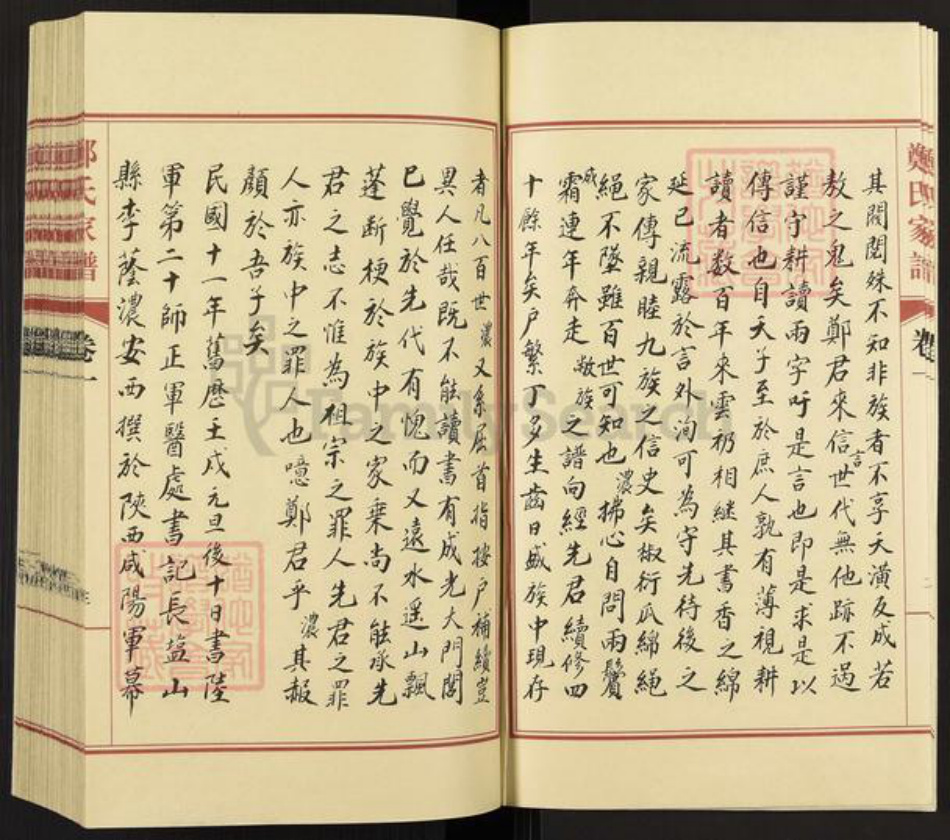 鄭氏家譜
卷一
其閥閱殊不知非族者不享天潢反成若
敖之鬼矣鄭君來信言世代無他跡不過
謹守耕讀兩字吁是言也即是求是以
傳信也自天子至於庶人孰有薄視耕
讀者数百年來雲礽相継其書香之綿
延已流露於言外洵可為守先待後之
家傳親睦九族之信史矣椒衍瓜綿繩
繩不墜雖百世可知也濃拂心自問兩鬢
咸霜連年奔走敝族之譜向經先君續修四
十餘年矣户繁丁多生齒日盛族中現存
者凡八百世濃又系居首指按户補續豈
異人任哉既不能讀書有成光大門閭
已覺於先代有愧而又遠水遥山飄
蓬断梗於族中之家乗尚不能承先
君之志不惟為祖宗之罪人先君之罪
人亦族中之罪人也噫鄭君乎濃其赧
顔於吾子矣
民國十一年舊歷壬戌元旦後十日書陸
軍第二十師正軍醫處書記長塩山
縣李蔭濃安西撰於陝西咸陽軍幕
鄭氏家譜
卷一
FamilySearch